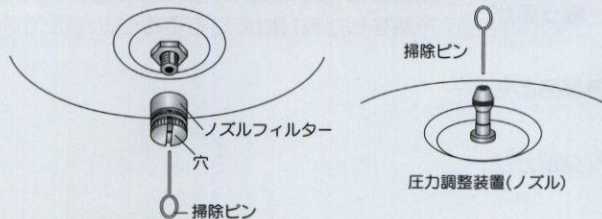 ノズルフィルター
穴
掃除ピン
掃除ピン
圧力調整装置(ノズル)